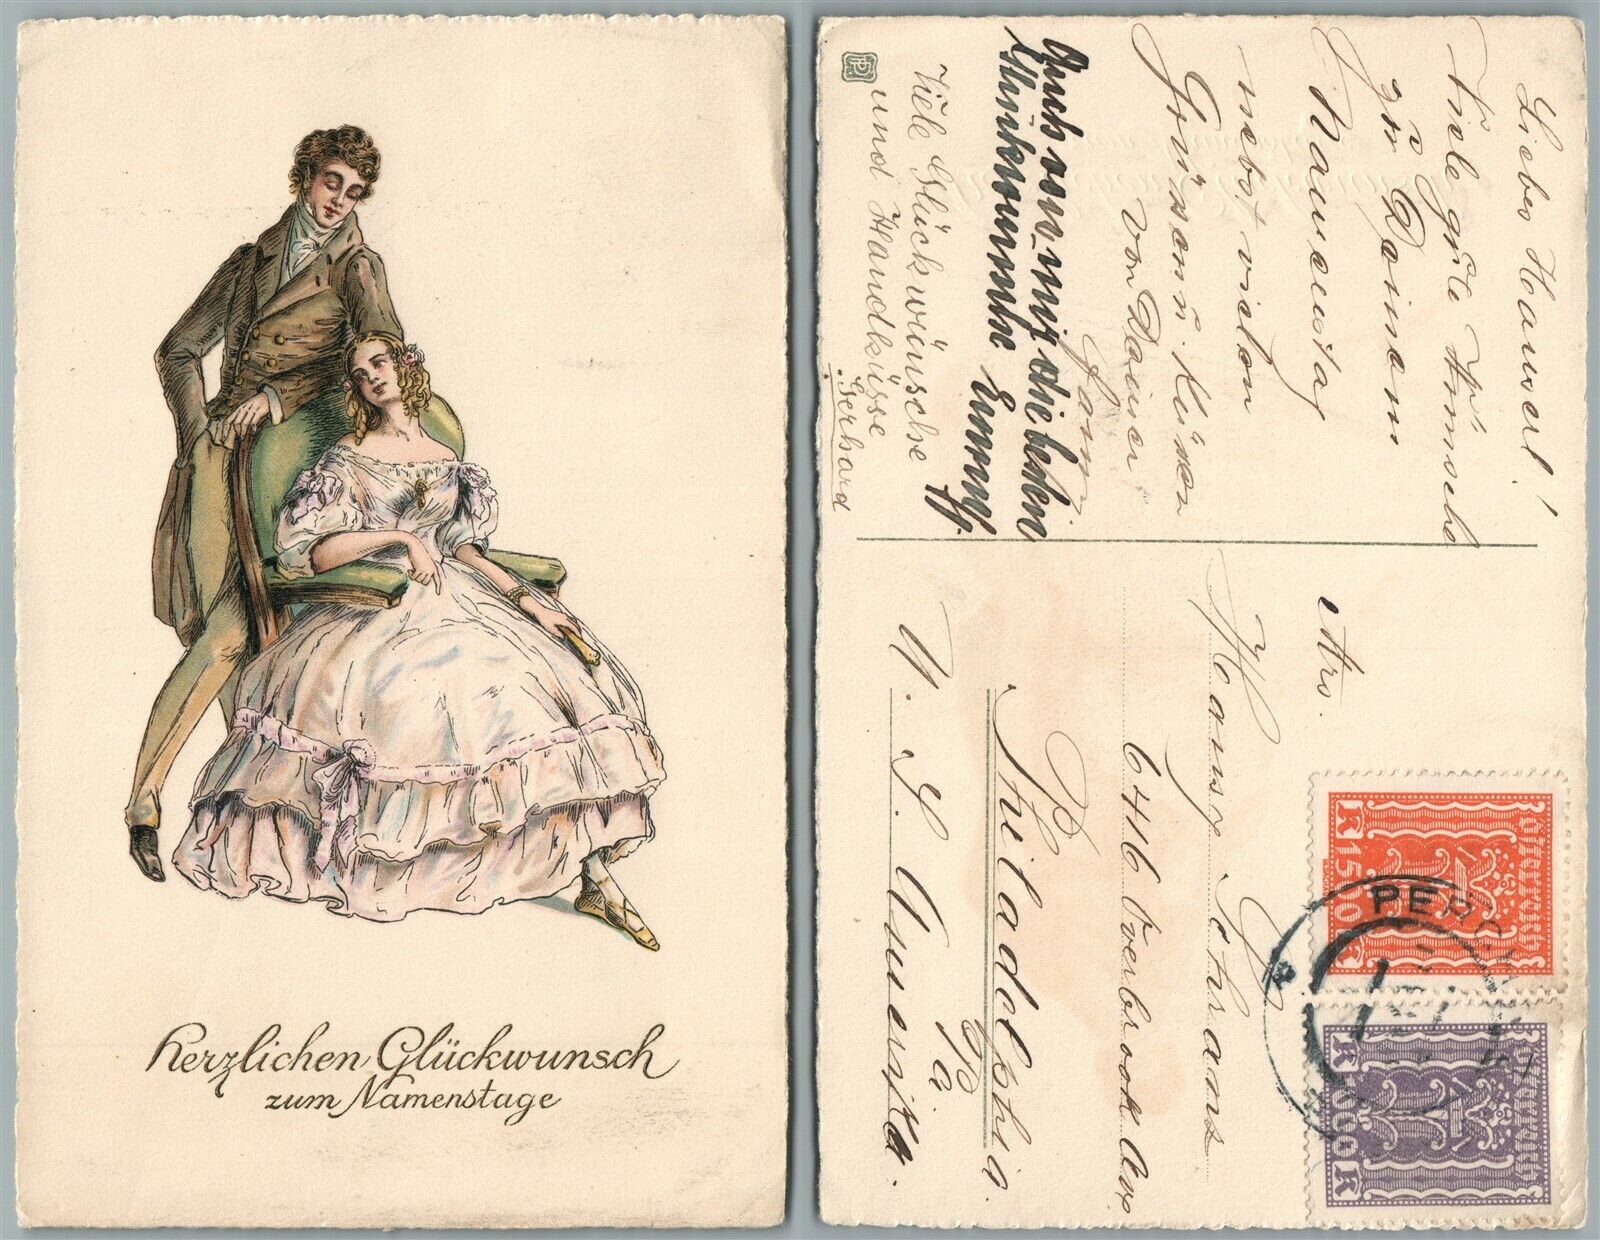 Herzlichen Glückwunsch
zum Namenstage
Liebes Hanserl!
Viele gute Wünsche
zu Deinem
Namenstag
nebst vielen
Grüssen u. Küssen
von Deiner
Fanni
Auch von mir die besten
Glückwünsche Emmy.
Viele Glückwünsche
und Handküsse
Gerhard
Mrs.
6416 Overbrook Ave
Philadelphia
Pa
U. S. Amerika.
PERCH
K 1500 K
Österreich
K 1000 K
Österreich